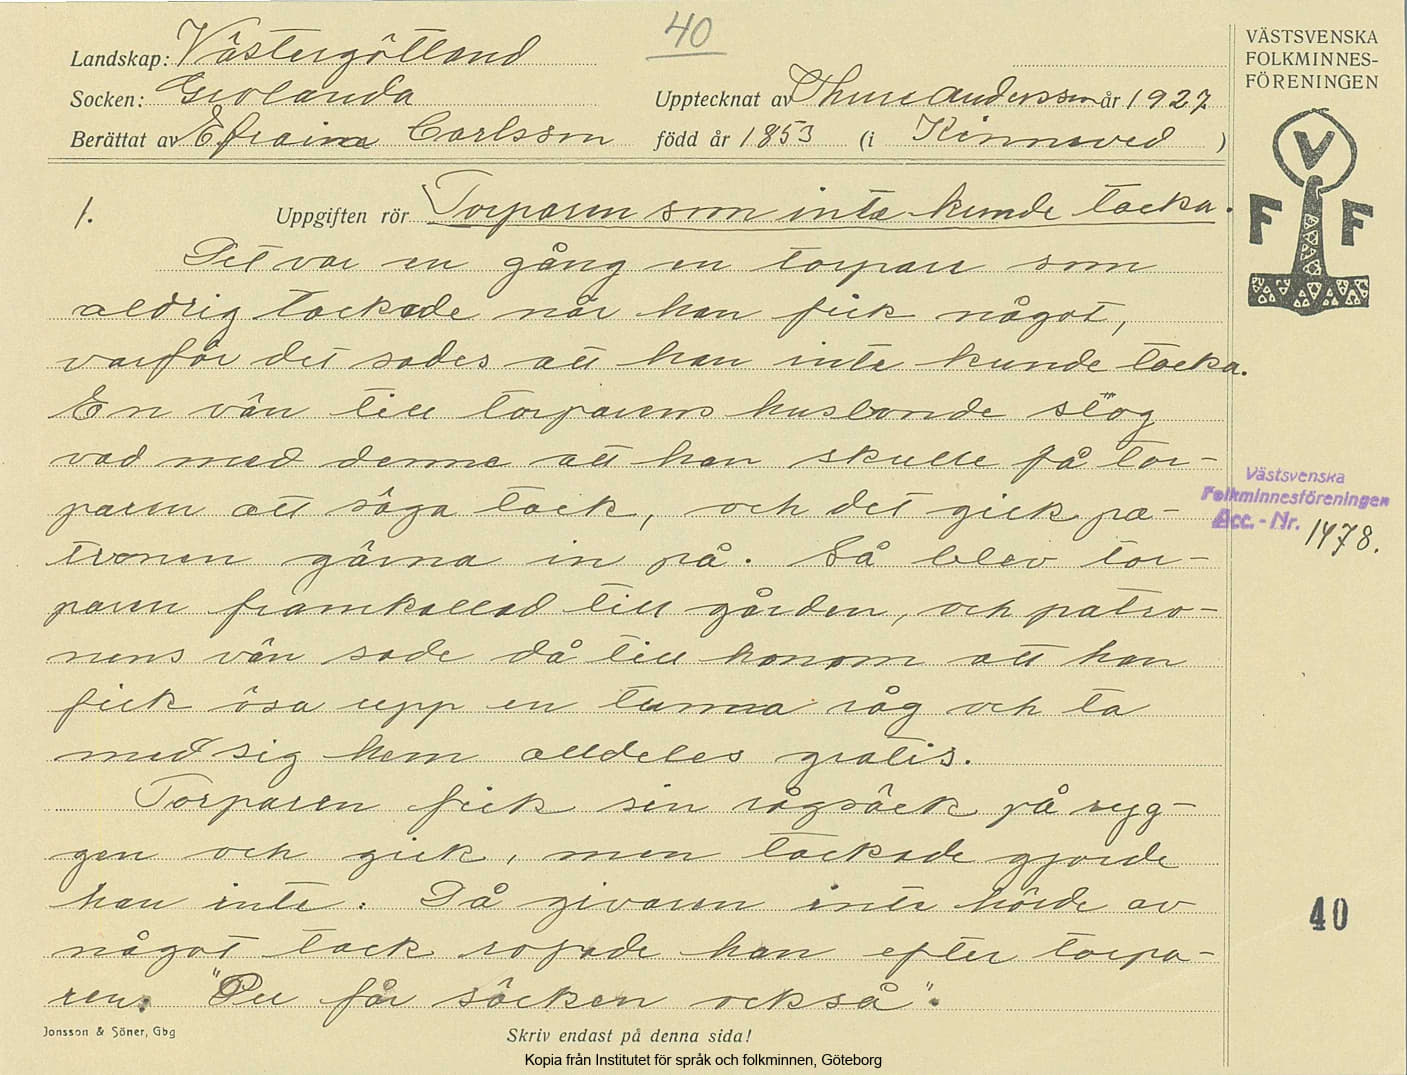 40
Landskap: Västergötland
Socken: Grolanda Upptecknat av Thure Andersson år 1927
Berättat av Efraim Carlsson född år 1853 (i Kinneved )
1. Uppgiften rör Torparen som inte kunde tacka.
Det var en gång en torpare som
aldrig tackade när han fick något,
varför det sades att han inte kunde tacka.
En vän till torparens husbonde slog
vad med denne att han skulle få tor-
paren att säga tack, och det gick pa-
tronen gärna in på. Så blev tor-
paren framkallad till gården, och patro-
nens vän sade då till honom att han
fick ösa upp en tunna råg och ta
med sig hem alldeles gratis.
Torparen fick sin rågsäck på ryg-
gen och gick, men tackade gjorde
han inte. Då givaren inte hörde av
något tack ropade han efter torpa-
ren: "Du får säcken också".
Jonsson & Söner, Gbg
Skriv endast på denna sida!
Kopia från Institutet för språk och folkminnen, Göteborg
VÄSTSVENSKA
FOLKMINNES-
FÖRENINGEN
V
F F
Västsvenska
Folkminnesföreningen
Acc. - Nr. 1478.
40